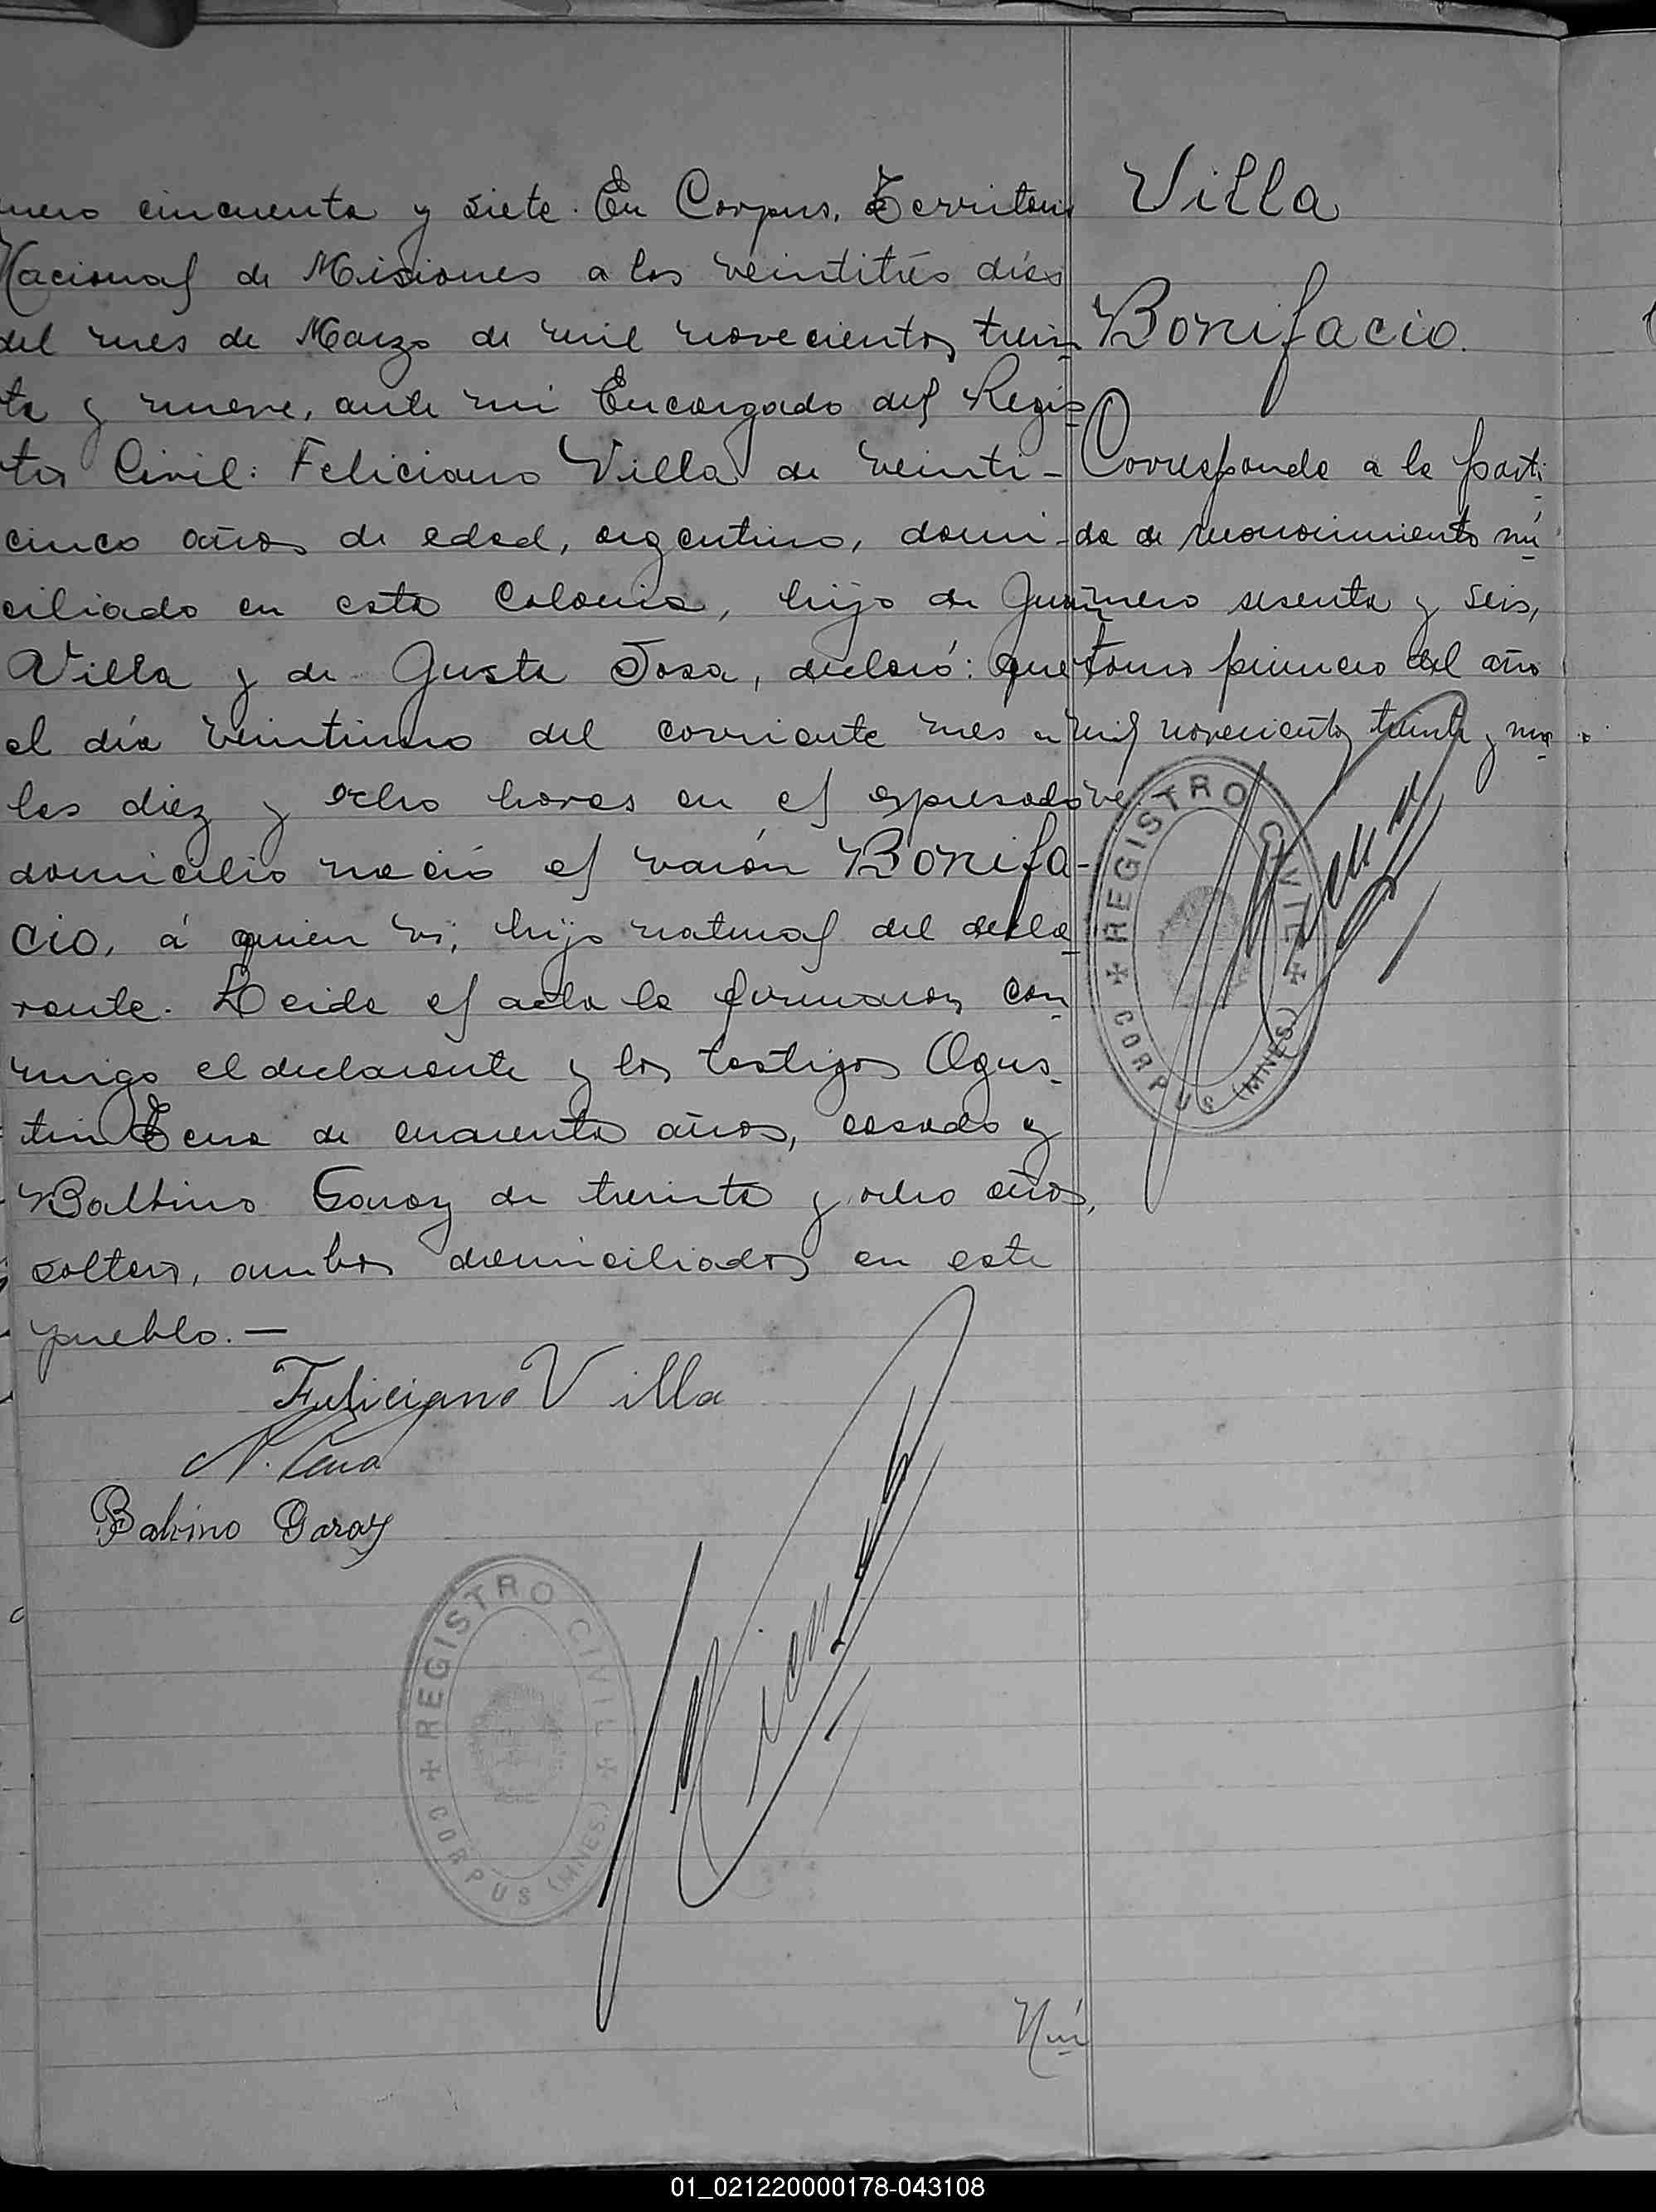 mero cincuenta y siete. En Corpus, Territorio
Nacional de Misiones a los veintitrés días
del mes de Marzo de mil novecientos trein
ta y nueve, ante mi Encargado del Regis
tro Civil: Feliciano Villa de veinti-
cinco años de edad, argentino, domi-
ciliado en esta Colonia, hijo de
Villa y de Justa Sosa, declaró: que
el día veintiuno del corriente mes a
las diez y ocho horas en el expresado
domicilio nació el varón Bonifa-
cio, á quien vi, hijo natural del decla
rante. Leida el acta la firmaron con
migo el declarante y los testigos Agus
tin Cena de cuarenta años, casado y
Balbino Garay de treinta y ocho años,
soltero, ambos domiciliados en este
pueblo.—
Feliciano Villa
A. Cena
Balvino Garay
REGISTRO CIVIL
CORPUS (MNES.)
Nú
Villa
Bonifacio.
Corresponde a la parti
da de reconocimiento nú
mero sesenta y seis,
tomo primero del año
mil novecientos treinta y nue
ve
REGISTRO CIVIL
CORPUS (MNES.)
01_021220000178-043108